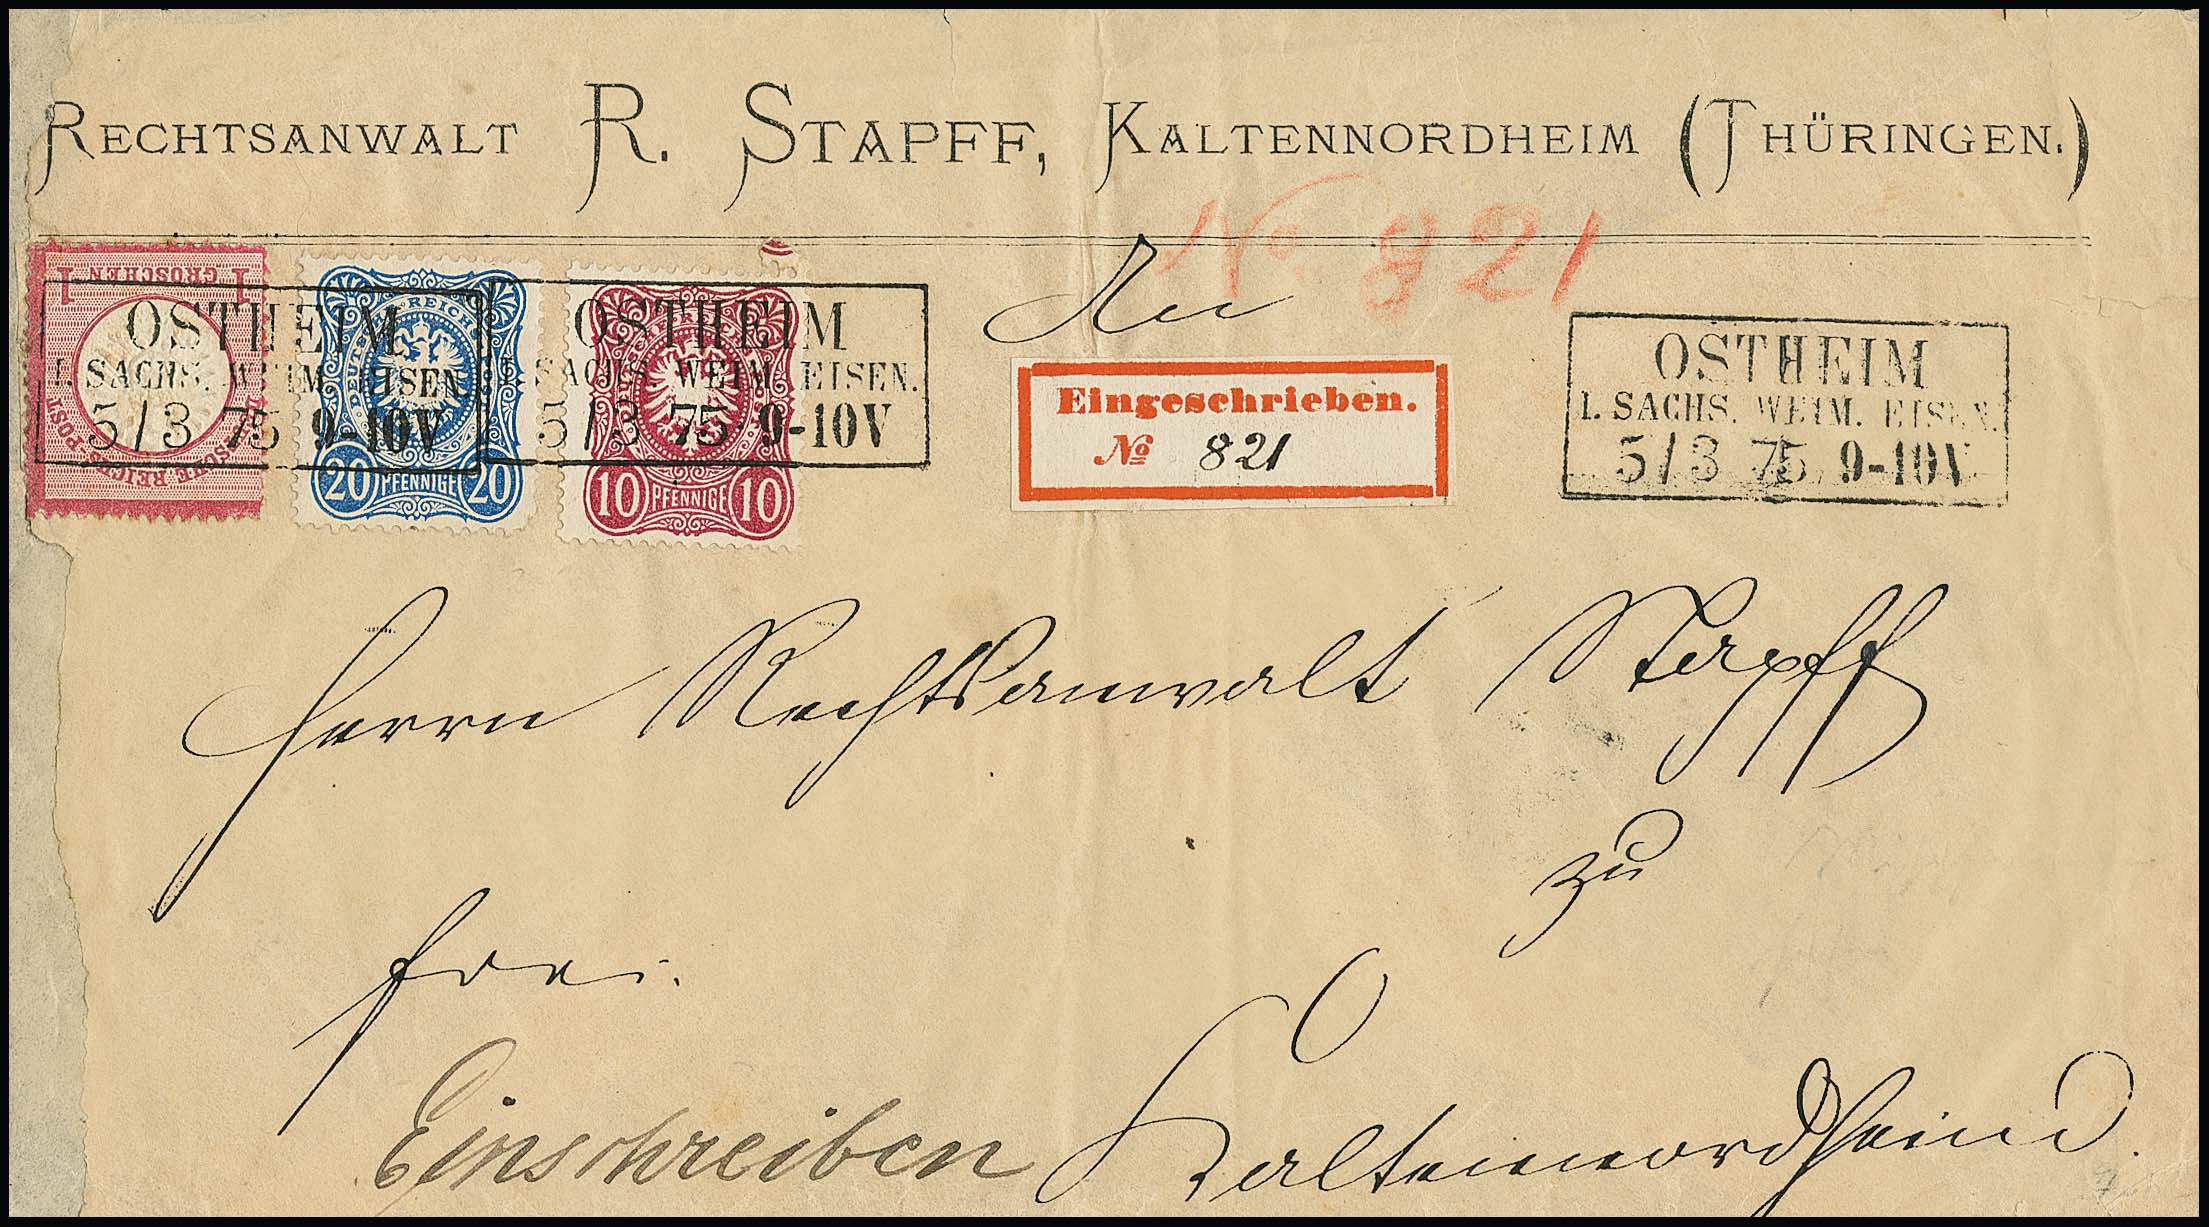 RECHTSANWALT R. STAPFF, KALTENNORDHEIM (THÜRINGEN.)
No 821
An
1 GROSCHEN 1
DEUTSCHE REICHS-POST
DEUTSCHE REICHS-POST
20 PFENNIGE 20
DEUTSCHE REICHS-POST
10 PFENNIGE 10
OSTHEIM
I. SACHS. WEIM. EISEN.
5/3 75 9-10V
OSTHEIM
I. SACHS. WEIM. EISEN.
5/3 75 9-10V
Eingeschrieben.
No 821
OSTHEIM
I. SACHS. WEIM. EISEN.
5/3 75 9-10V
Herrn Rechtsanwalt Stapff
zu
frei.
Einschreiben
Kaltennordheim